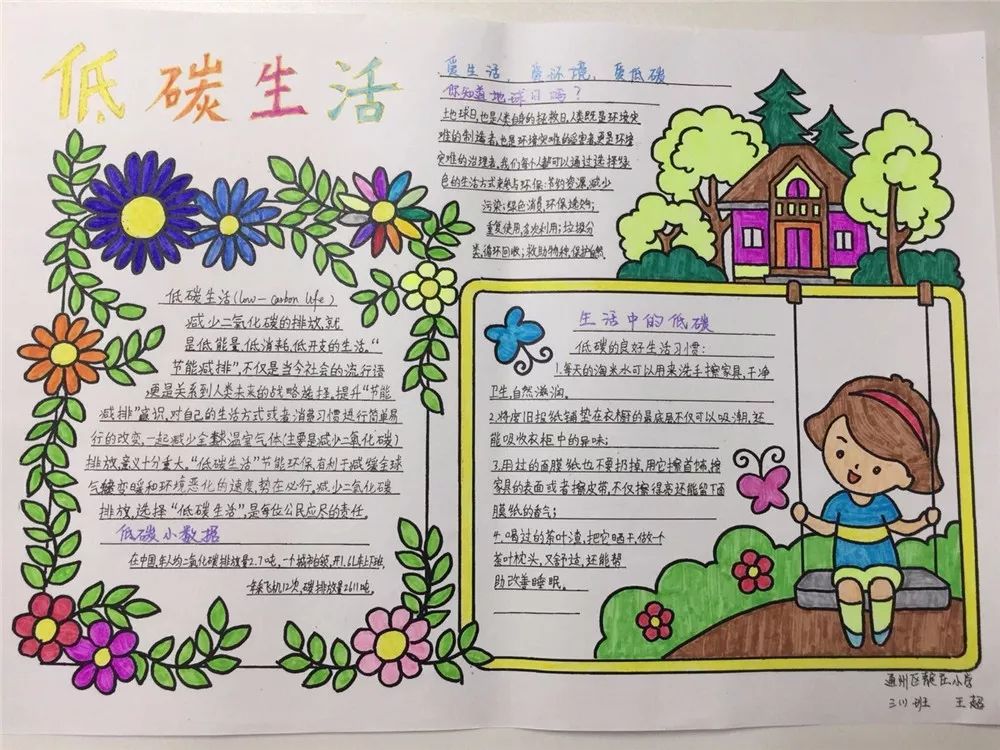 低碳生活
爱生活，爱环境，爱低碳
你知道地球日吗？
土地球日,也是人类自身的拯救日,人类既是环境灾
难的制造者,也是环境灾难的受害者,更是环境
灾难的治理者,我们每个人都可以通过选择绿
色的生活方式来参与环保:节约资源,减少
污染;绿色消费,环保选购;
重复使用,多次利用;垃圾分
类,循环回收;救助物种,保护自然
低碳生活(low-carbon life)
减少二氧化碳的排放,就
是低能量,低消耗,低开支的生活。“
节能减排”,不仅是当今社会的流行语
更是关系到人类未来的战略选择,提升“节能
减排”意识,对自己的生活方式或者消费习惯进行简单易
行的改变,一起减少全球温室气体(主要是减少二氧化碳)
排放,意义十分重大。“低碳生活”节能环保,有利于减缓全球
气候变暖和环境恶化的速度,势在必行,减少二氧化碳
排放,选择“低碳生活”,是每位公民应尽的责任,
低碳小数据
在中国年人均二氧化碳排放量2.7吨,一个城市白领,开1.6L车上下班,
年乘飞机12次,碳排放量2611吨,
生活中的低碳
低碳的良好生活习惯:
1.每天的淘米水可以用来洗手擦家具,干净
卫生,自然滋润。
2.将废旧报纸铺垫在衣橱的最底层,不仅可以吸潮,还
能吸收衣柜中的异味;
3.用过的面膜纸也不要扔掉,用它擦首饰,擦
家具的表面或者擦皮带,不仅擦得亮还能留下面
膜纸的香气;
4.喝过的茶叶渣,把它晒干,做一个
茶叶枕头,又舒适,还能帮
助改善睡眠。
通州区 小学
三(1)班 王超